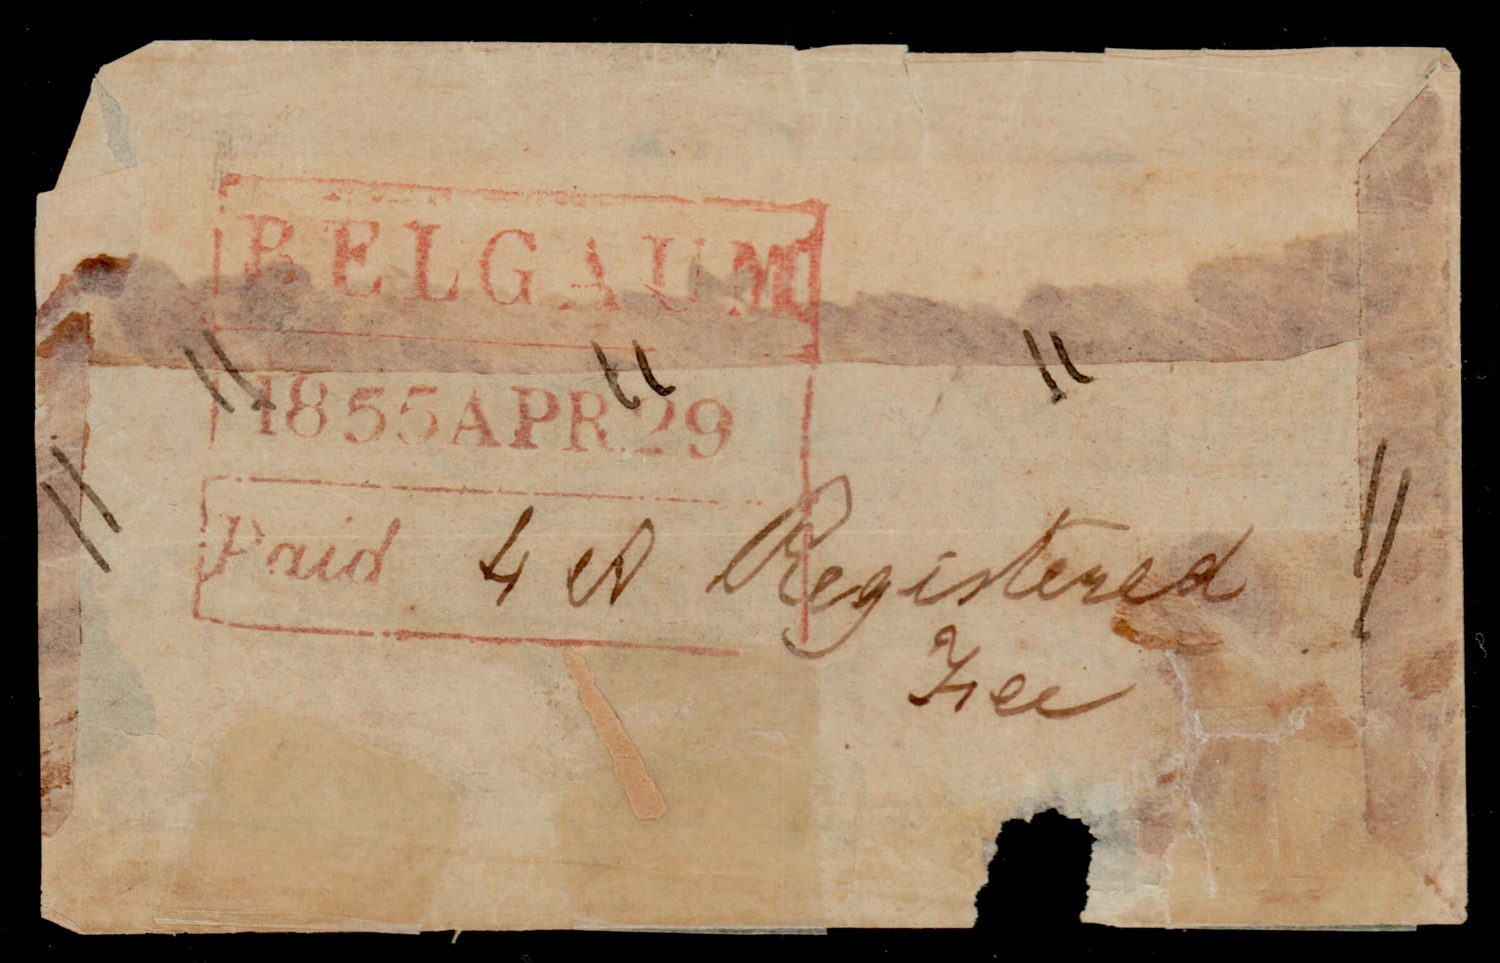 BELGAUM
1855 APR 29
Paid 4 A Registered
Fee